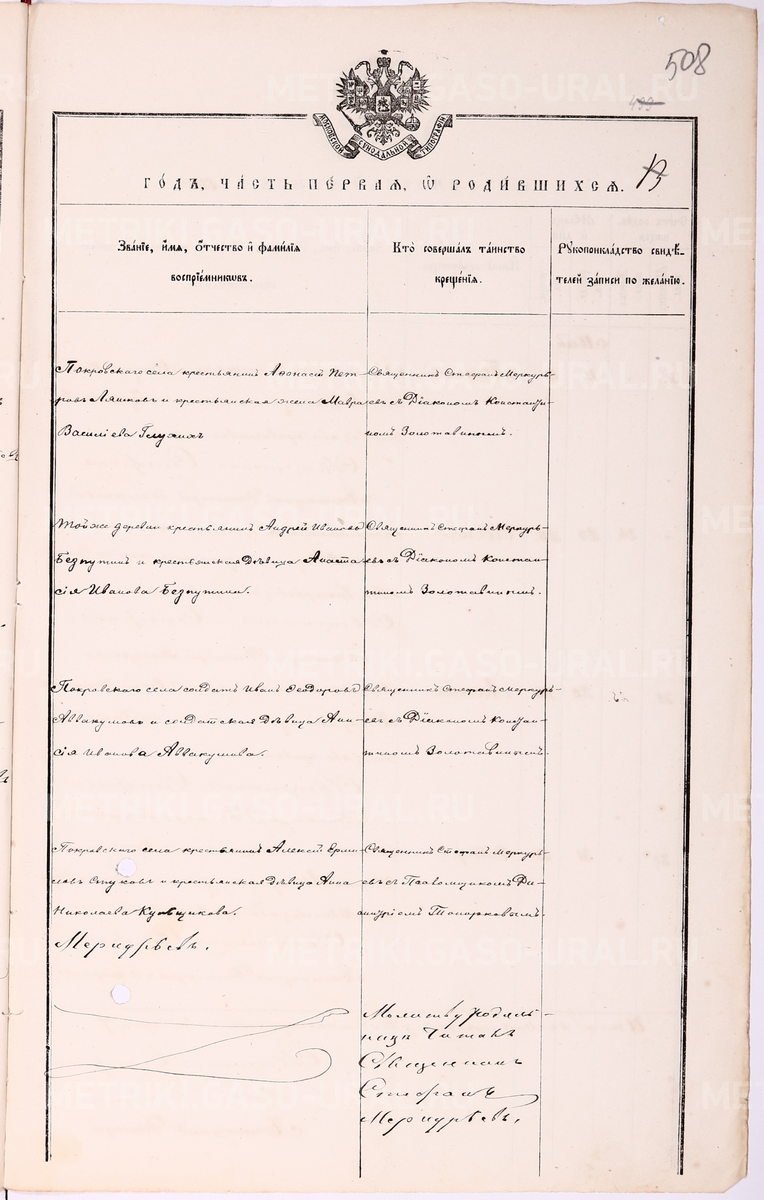 508
МОСКОВСКОЙ СѴНОДАЛЬНОЙ ТИПОГРАФІИ
ГО́ДЪ, ЧА́СТЬ ПЕ́РВАЯ, Ѡ҆ РОДИ́ВШИХСЯ. 13
Зва́нїе, и҆́мя, ѻ҆́тчество и҆ фами́лїя
воспрїе́мникѡвъ.
Кто̀ соверша́лъ та́инство
креще́нїя.
Рꙋкоприкла́дство свидѣ́-
телей за́писи по жела́нїю.
Покровскаго села крестьянинъ Аѳонасій Пет-
ровъ Ляпковъ и крестьянская жена Мавра
Василіева Глухихъ
Священникъ Стефанъ Меркурь-
евъ съ Діакономъ Константи-
номъ Золотавинымъ.
Тойже деревни крестьянинъ Андрей Ивановъ
Безпутинъ и крестьянская дѣвица Анаста
сія Иванова Безпутина.
Священникъ Стефанъ Меркурь-
евъ съ Діакономъ Констан-
тиномъ Золотавинымъ.
Покровскаго села солдатъ Иванъ Ѳеодоровъ
Аввакумовъ и солдатская дѣвица Ани-
сія Иванова Аввакумова.
Священникъ Стефанъ Меркурь-
евъ съ Діакономъ Констан-
тиномъ Золотавинымъ.
Покровскаго села крестьянинъ Алексій Ерми-
ловъ Стуковъ и крестьянская дѣвица Анна
Николаева Кульщикова.
Священникъ Стефанъ Меркурь-
евъ съ Псаломщикомъ Ди-
митріемъ Топорковымъ.
Меркурьевъ.
Молитву родиль-
ницъ читалъ
Священникъ
Стефанъ
Меркурьевъ.
METRIKI.GASO-URAL.RU